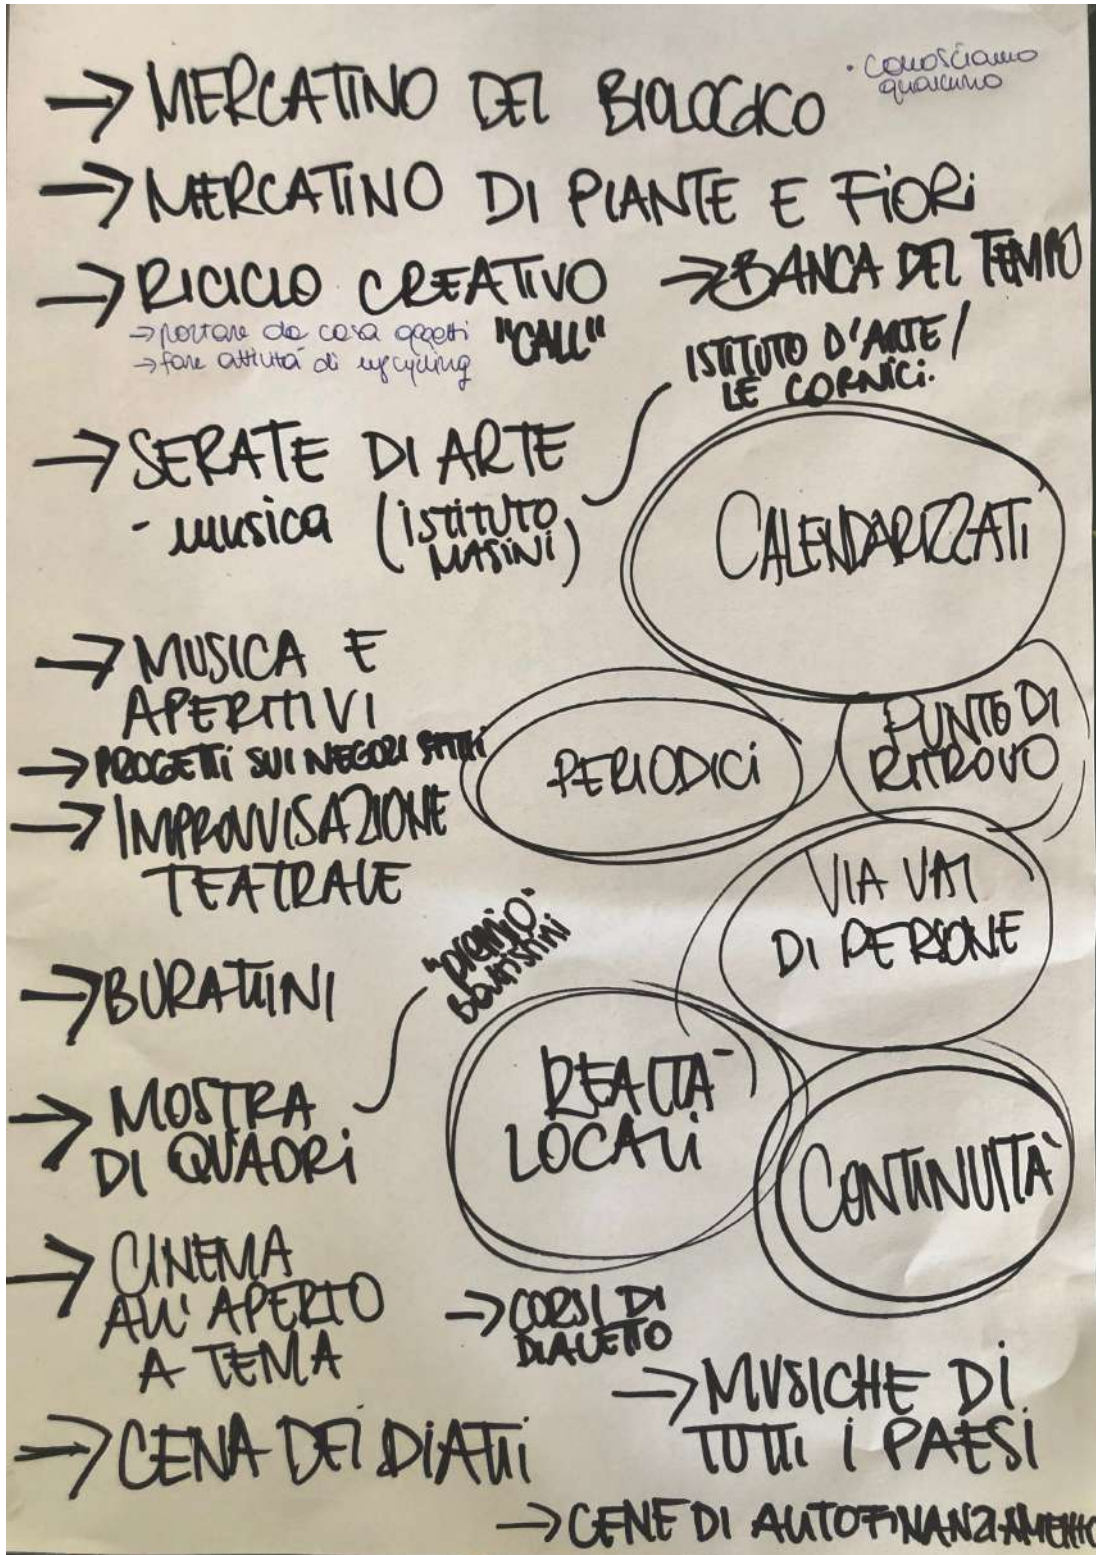 → MERCATINO DEL BIOLOGICO
· conosciamo
qualcuno
→ MERCATINO DI PIANTE E FIORI
→ RICICLO CREATIVO
→ portare da casa oggetti
→ fare attività di upcycling
"CALL"
→ BANCA DEL TEMPO
ISTITUTO D'ARTE /
LE CORNICI.
→ SERATE DI ARTE
- musica (ISTITUTO
MASINI)
CALENDARIZZATI
→ MUSICA E
APERITIVI
→ PROGETTI SUI NEGOZI SFITTI
PERIODICI
PUNTO DI
RITROVO
→ IMPROVVISAZIONE
TEATRALE
VIA VAI
DI PERSONE
→ BURATTINI
"PREMIO
→ MOSTRA
DI QUADRI
REALTÀ
LOCALI
CONTINUITÀ
→ CINEMA
ALL'APERTO
A TEMA
→ CORSI DI
DIALETTO
→ MUSICHE DI
TUTTI I PAESI
→ CENA DEI DIATTI
→ CENE DI AUTOFINANZIAMENTO